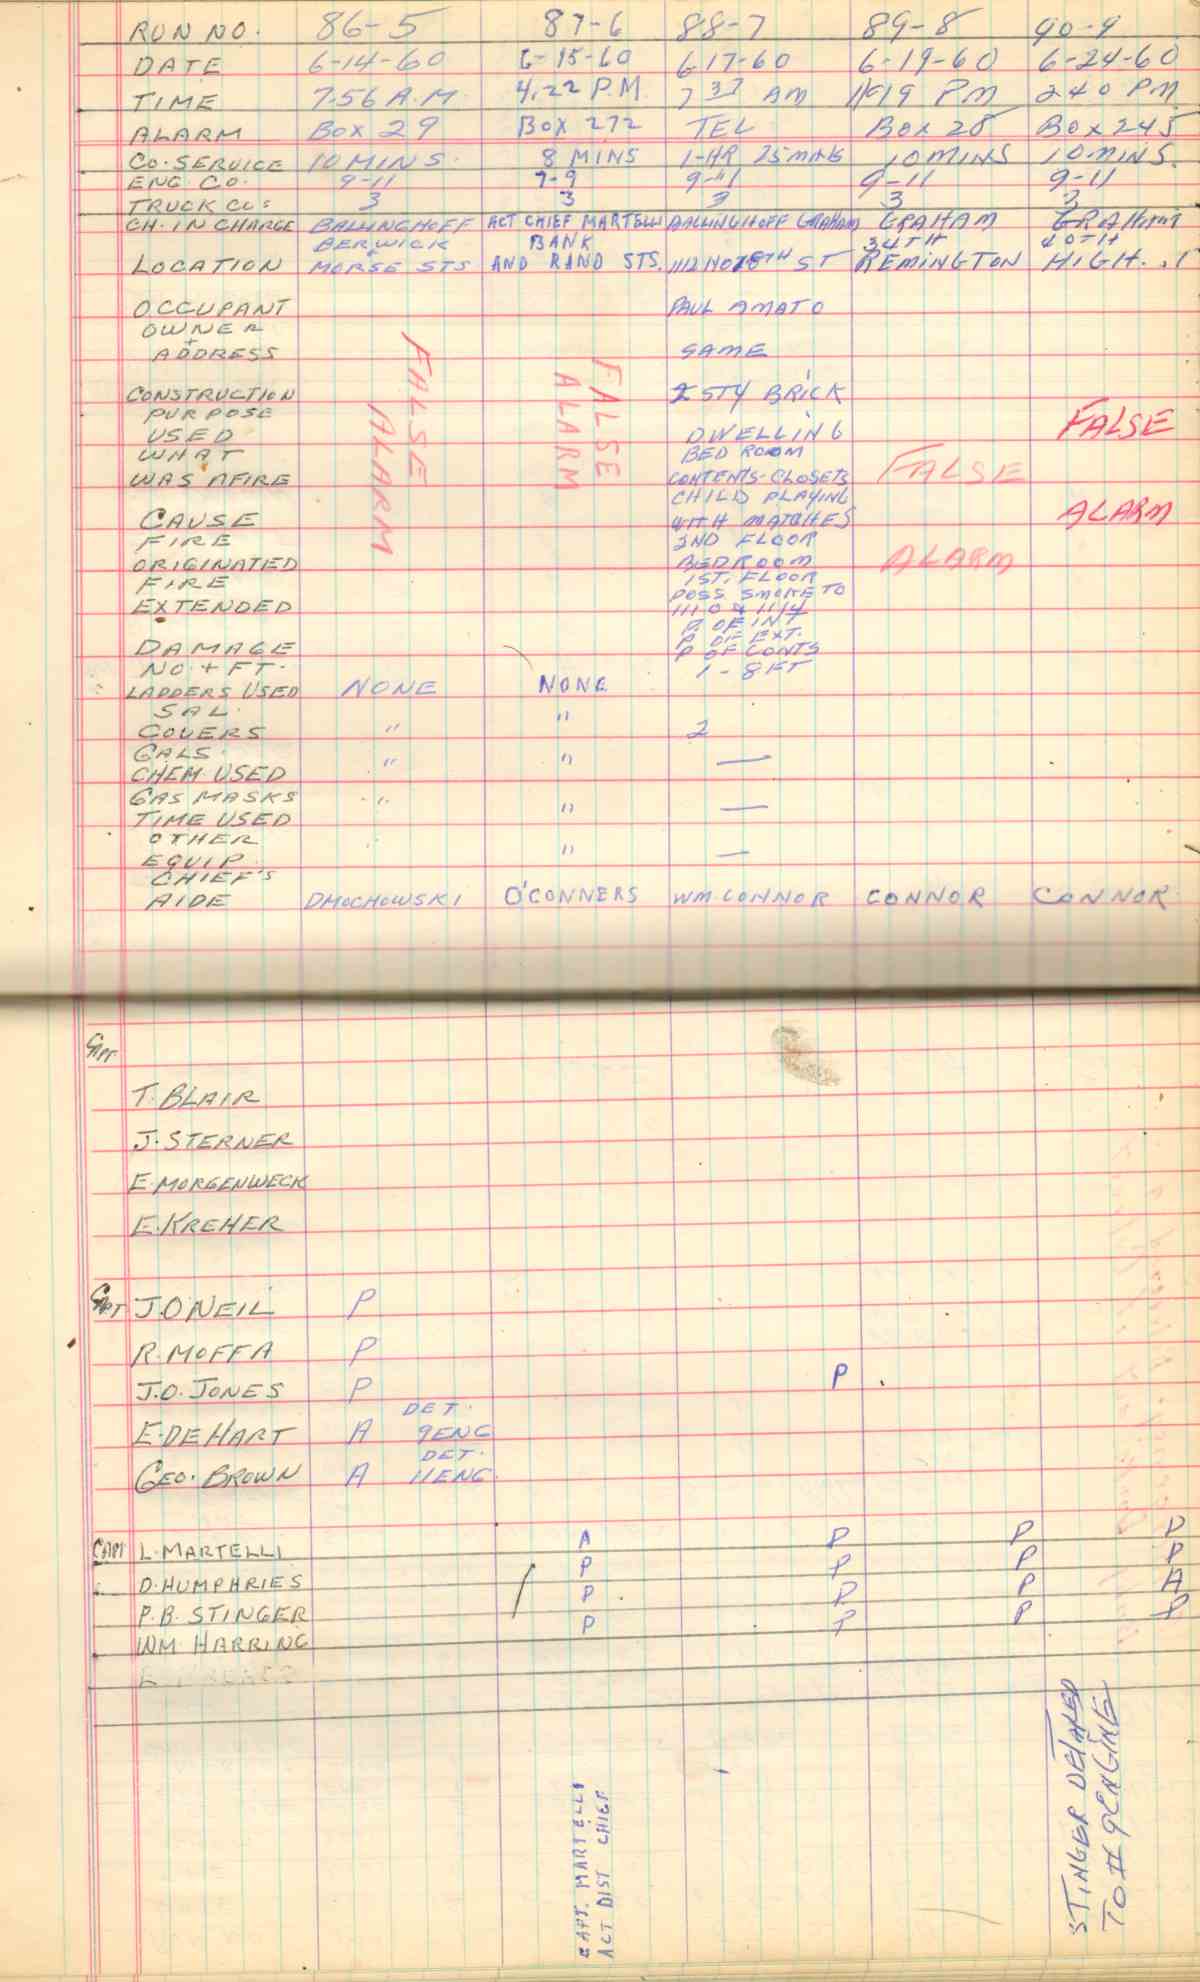 RUN NO. 86-5 87-6 88-7 89-8 90-9
DATE 6-14-60 6-15-60 6-17-60 6-19-60 6-24-60
TIME 7-56 A.M. 4:22 P.M. 7 37 AM 11-19 PM 240 PM
ALARM BOX 29 BOX 272 TEL BOX 28 BOX 245
CO. SERVICE 10 MINS. 8 MINS 1-HR 25 MINS 10 MINS 10 MINS.
ENG. CO. 9-11 7-9 9-11 9-11 9-11
TRUCK CO: 3 3 3 3 3
CH. IN CHARGE BALLINGHOFF ACT CHIEF MARTELLI BALLINGHOFF GRAHAM GRAHAM GRAHAM
BERWICK BANK 34TH 40TH
LOCATION + MORSE STS AND RAND STS. 1112 NO 28TH ST REMINGTON HIGH
OCCUPANT PAUL AMATO
OWNER
+
ADDRESS SAME
FALSE ALARM
FALSE ALARM
CONSTRUCTION 2 STY BRICK
PURPOSE
USED DWELLING
FALSE
WHAT BED ROOM
WAS AFIRE CONTENTS-CLOSETS
FALSE
CHILD PLAYING
CAUSE WITH MATCHES
ALARM
FIRE 2ND FLOOR
ORIGINATED BEDROOM
ALARM
FIRE 1ST. FLOOR
POSS SMOKE TO
EXTENDED 1110 & 1114
P. OF INT
P OF EXT.
DAMAGE P OF CONTS
NO. + FT. 1 - 8 FT
LADDERS USED NONE NONE
SAL.
COVERS " " 2
GALS.
CHEM. USED " " —
GAS MASKS
TIME USED " " —
OTHER
EQUIP. " " —
CHIEF'S
AIDE DMOCHOWSKI O'CONNERS WM. CONNOR CONNOR CONNOR
CAPT
T. BLAIR
J. STERNER
E. MORGENWECK
E. KREHER
CAPT J. O NEIL P
R. MOFFA P
J. O. JONES P P
DET.
E. DE HART A 9 ENG
DET.
GEO. BROWN A 11 ENG.
CAPT L. MARTELLI A P P P
D. HUMPHRIES P P P P
P. B. STINGER P P P A
WM HARRING P P P P
CAPT. MARTELLI
ACT DIST CHIEF
STINGER DETAILED
TO # 9 ENGINE